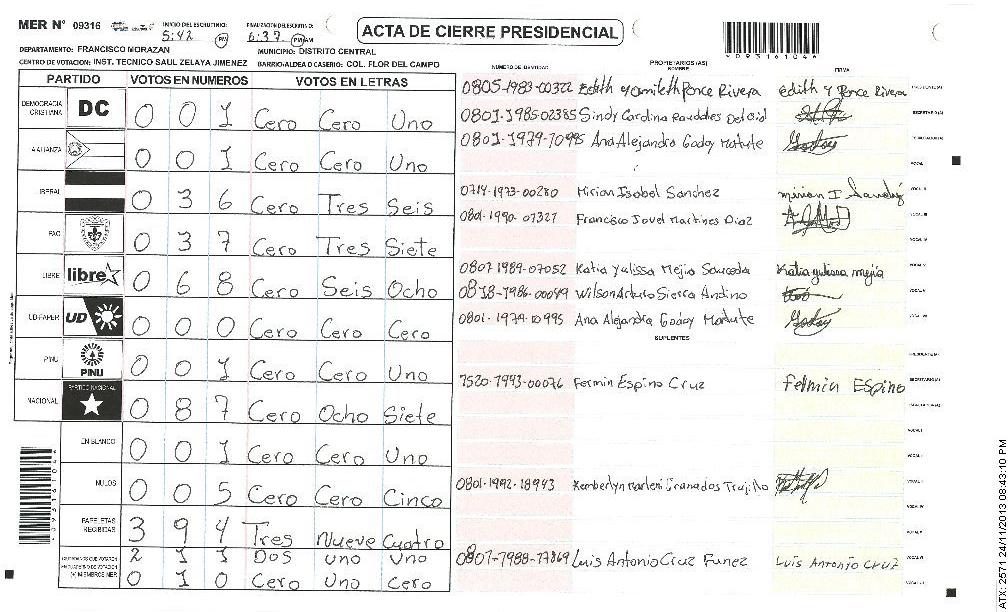 MER N° 09316 INICIO DEL ESCRUTINIO: 5:42 PM FINALIZACIÓN ESCRUTINIO: 6:37 PM AM
ACTA DE CIERRE PRESIDENCIAL
*09316104*
DEPARTAMENTO: FRANCISCO MORAZAN MUNICIPIO: DISTRITO CENTRAL
CENTRO DE VOTACION: INST. TECNICO SAUL ZELAYA JIMENEZ BARRIO/ALDEA O CASERIO: COL. FLOR DEL CAMPO
PARTIDO VOTOS EN NUMEROS VOTOS EN LETRAS
DEMOCRACIA CRISTIANA DC 0 0 1 Cero Cero Uno
ALIANZA 0 0 1 Cero Cero Uno
LIBERAL 0 3 6 Cero Tres Seis
PAC 0 3 7 Cero Tres Siete
LIBRE libre 0 6 8 Cero Seis Ocho
UD-FAPER UD 0 0 0 Cero Cero Cero
PINU PINU 0 0 1 Cero Cero Uno
NACIONAL PARTIDO NACIONAL 0 8 7 Cero Ocho Siete
EN BLANCO 0 0 1 Cero Cero Uno
NULOS 0 0 5 Cero Cero Cinco
PAPELETAS RECIBIDAS 3 9 4 Tres Nueve Cuatro
CIUDADANOS QUE VOTARON 2 1 1 Dos uno Uno
(+) MIEMBROS MER 0 1 0 Cero Uno Cero
NUMERO DE IDENTIDAD PROPIETARIOS (AS) NOMBRE FIRMA
0805-1983-00322 Edith Yamileth Ponce Rivera edith y Ponce Rivera PRESIDENTE(A)
0801-1985-02385 Sindy Carolina SECRETARIO(A)
0801-1979-10995 Ana Alejandra Godoy Matute Godoy
0714-1973-00280 Mirian Isabel Sanchez mirian I Sanchez
0801-1990-07327 Francisco Javel Martines Diaz
0807-1989-07052 Katia Yulissa Mejia Sauceda Katia yulissa mejia
0818-1986-00049 Wilson Arturo Sierra Andino
0801-1979-10995 Ana Alejandra Godoy Matute Godoy
SUPLENTES
PRESIDENTE(A)
1520-1943-00076 Fermin Espino Cruz Felmin ESPino SECRETARIO(A)
0801-1992-18943 Kemberlyn Marleni Granados Trujillo
0801-1988-17869 Luis Antonio Cruz Funez Luis Antonio CRUZ
*09316104*
ATX: 2571 24/11/2013 08:43:10 PM